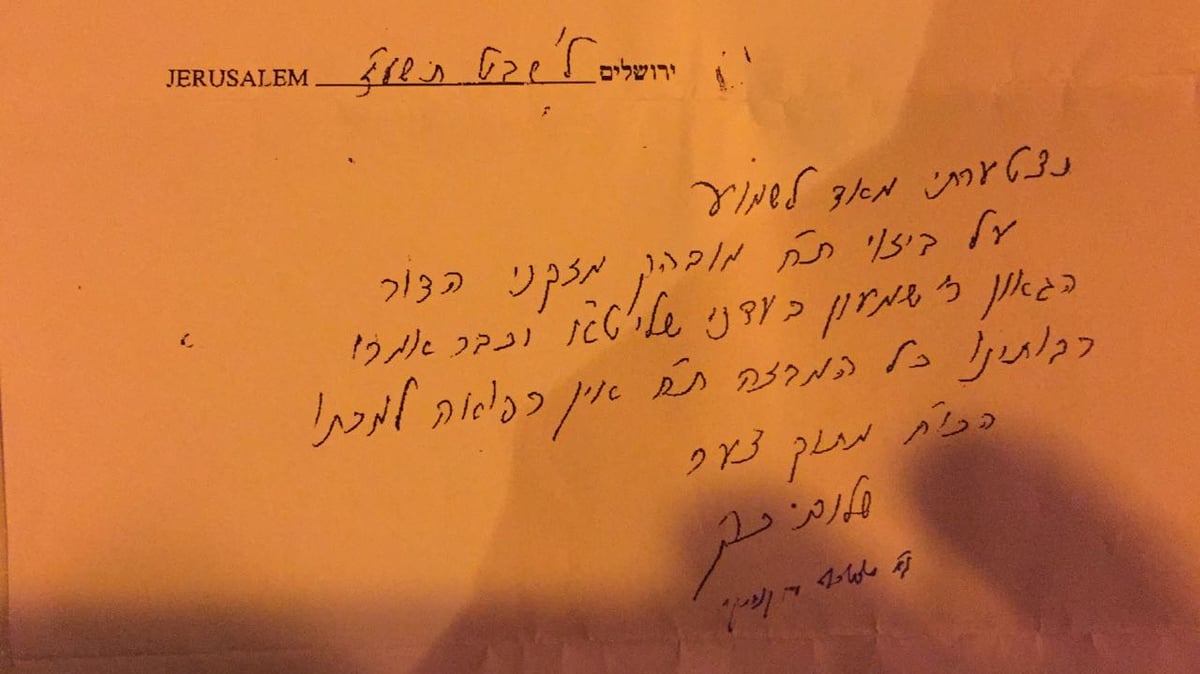 JERUSALEM ל' שבט תשע"ז ירושלים
נצטערתי מאד לשמוע
על ביזוי ת"ח מובהק מזקני הדור
הגאון ר' שמעון בעדני שליט"א וכבר אמרו
רבותינו כל המבזה ת"ח אין רפואה למכתו
הכו"ח מתוך צער
שלום כהן